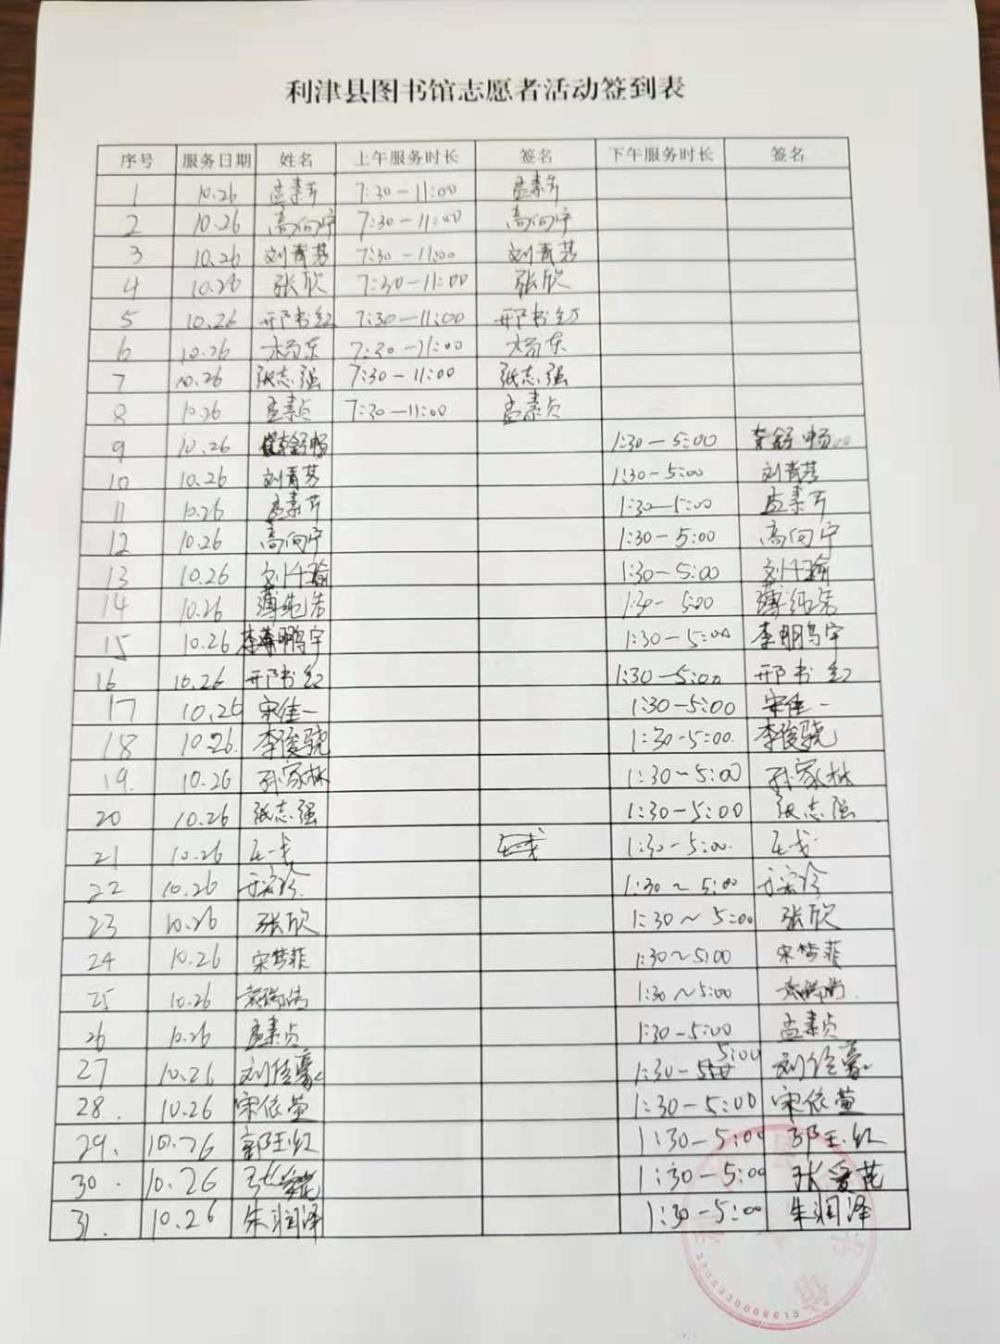 利津县图书馆志愿者活动签到表
序号 服务日期 姓名 上午服务时长 签名 下午服务时长 签名
1 10.26 孟素芹 7:30-11:00 孟素芹
2 10.26 高向宁 7:30-11:00 高向宁
3 10.26 刘青芳 7:30-11:00 刘青芳
4 10.26 张欣 7:30-11:00 张欣
5 10.26 邢书红 7:30-11:00 邢书红
6 10.26 7:30-11:00
7 10.26 张志强 7:30-11:00 张志强
8 10.26 孟素贞 7:30-11:00 孟素贞
9 10.26 1:30-5:00
10 10.26 刘青芳 1:30-5:00 刘青芳
11 10.26 孟素芹 1:30-5:00 孟素芹
12 10.26 高向宁 1:30-5:00 高向宁
13 10.26 1:30-5:00
14 10.26 薄纯浩 1:30-5:00 薄纯浩
15 10.26 1:30-5:00 李明鸟宇
16 10.26 邢书红 1:30-5:00 邢书红
17 10.26 宋佳一 1:30-5:00 宋佳一
18 10.26. 李俊骁 1:30-5:00. 李俊骁
19. 10.26 孙家林 1:30~5:00 孙家林
20 10.26 张志强 1:30-5:00 张志强
21 10.26 1:30-5:00.
22 10.26 1:30~5:00
23 10.26 张欣 1:30~5:00 张欣
24 10.26 宋梦菲 1:30~5:00 宋梦菲
25 10.26 1:30~5:00
26 10.26 孟素贞 1:30-5:00 孟素贞
27 10.26 刘佳豪 1:30-5:00 刘佳豪
28. 10.26 宋依萱 1:30-5:00 宋依萱
29. 10.26 郭玉红 1:30-5:00 郭玉红
30. 10.26 张爱花 1:30-5:00 张爱花
31. 10.26 朱润泽 1:30-5:00 朱润泽